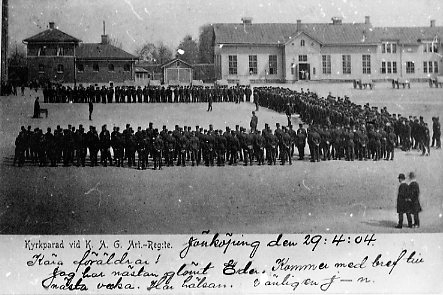 Kyrkparad vid K. A. G. Art.-Reg:te. Jönköping den 29:4.04
Kära föräldrar!
Jag har nästan glömt Eder. Kommer med bref till
nästa veka. Kär hälsan. vänligen J-n.